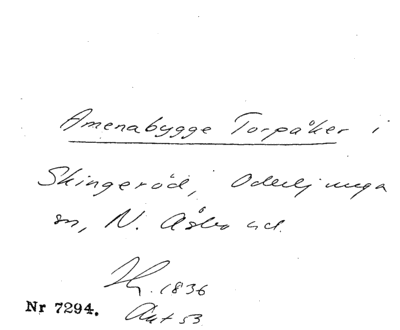 Amenabygge Torpåker i
Skingeröd, Oderljunga
sn, N. Åsbo hd.
1836
Nr 7294. Akt 53